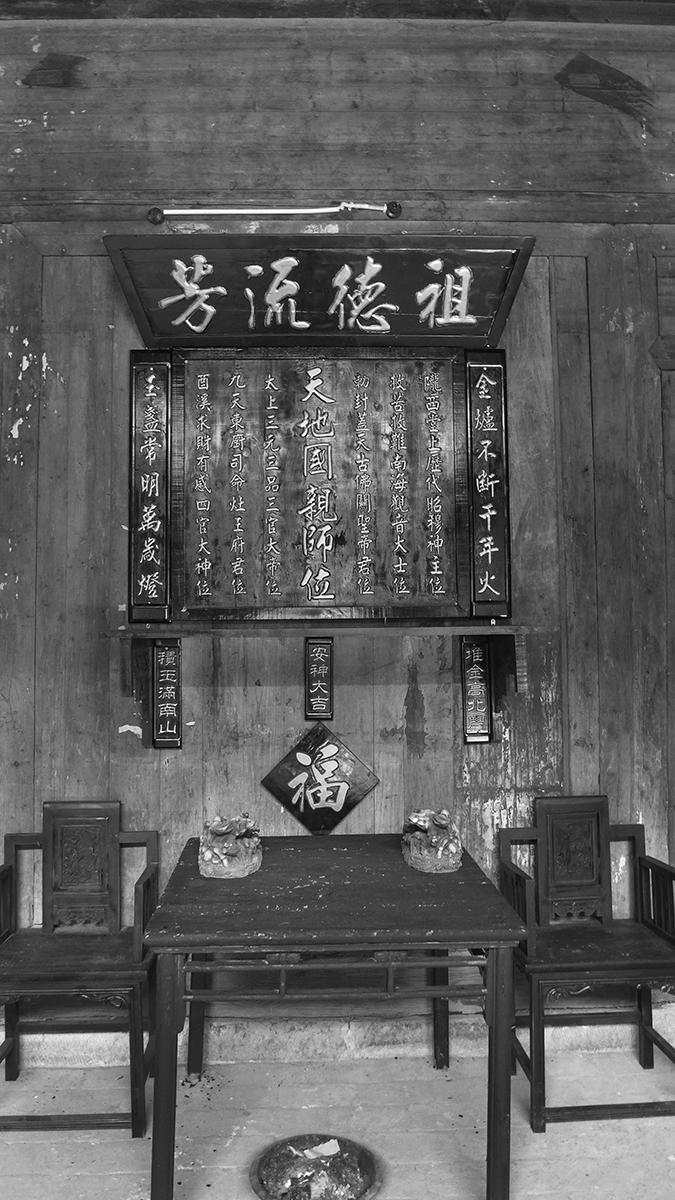 祖德流芳
金爐不断千年火
隴西堂上歷代昭穆神主位
救苦救難南海觀音大士位
勅封蓋天古佛關聖帝君位
天地國親師位
太上三元三品三官大帝位
九天東廚司命灶王府君位
酉溪求財有感四官大神位
玉盞常明萬歲燈
堆金高北斗
安神大吉
積玉滿南山
福